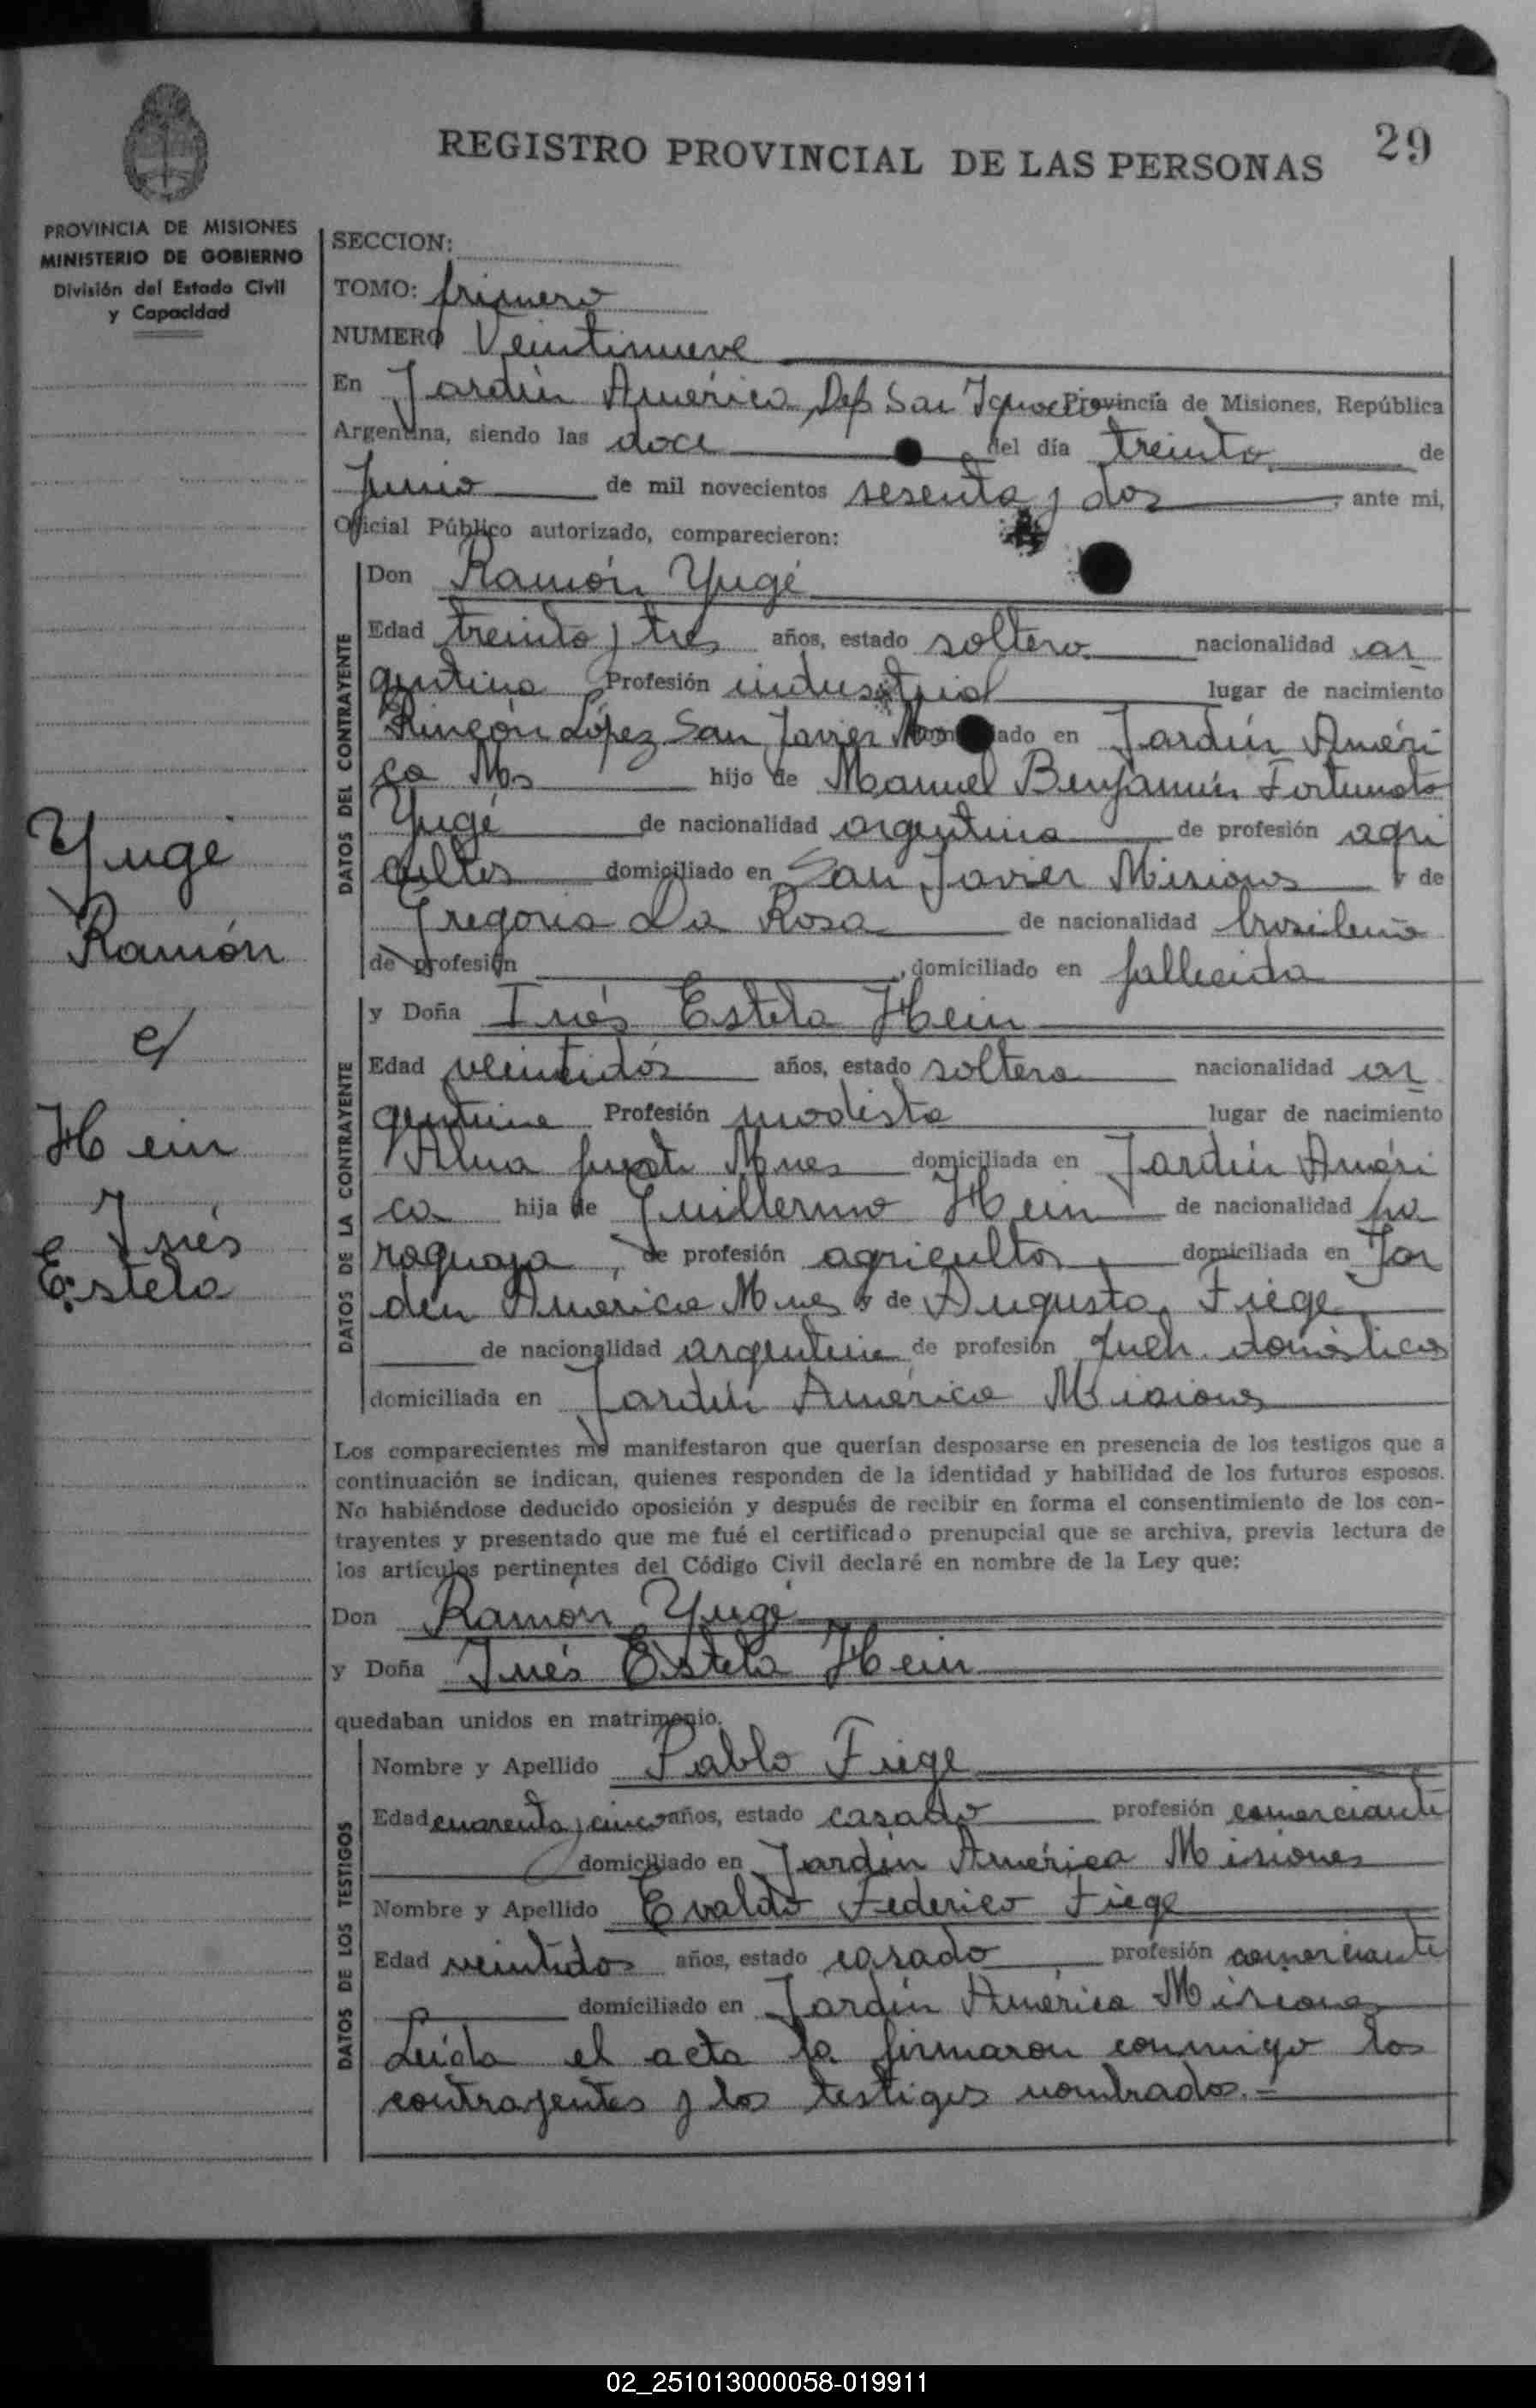 29
REGISTRO PROVINCIAL DE LAS PERSONAS
PROVINCIA DE MISIONES
MINISTERIO DE GOBIERNO
División del Estado Civil
y Capacidad
Yugé
Ramón
c/
Hein
Inés
Estela
SECCION:
TOMO: primero
NUMERO Veintinueve
En Jardín América Dep San Ignacio Provincia de Misiones, República
Argentina, siendo las doce del día treinta de
Junio de mil novecientos sesenta y dos, ante mi,
Oficial Público autorizado, comparecieron:
DATOS DEL CONTRAYENTE
Don Ramón Yugé
Edad treinta y tres años, estado soltero nacionalidad ar
gentina Profesión industrial lugar de nacimiento
Rincón López San Javier domiciliado en Jardín Améri
ca Ms hijo de Manuel Benjamín Fortunato
Yugé de nacionalidad argentina de profesión agri
cultor domiciliado en San Javier Misiones y de
Gregoria Da Rosa de nacionalidad brasileña
de profesión , domiciliado en fallecida
DATOS DE LA CONTRAYENTE
y Doña Inés Estela Hein
Edad veintidós años, estado soltera nacionalidad ar
gentina Profesión modista lugar de nacimiento
Mnes domiciliada en Jardín Améri
ca hija de Guillermo Hein de nacionalidad pa
raguaya, de profesión agricultor, domiciliada en Jar
dín América Mnes y de Augusta Fiege
de nacionalidad argentina de profesión Queh. domésticos
domiciliada en Jardín América Misiones
Los comparecientes me manifestaron que querían desposarse en presencia de los testigos que a
continuación se indican, quienes responden de la identidad y habilidad de los futuros esposos.
No habiéndose deducido oposición y después de recibir en forma el consentimiento de los con-
trayentes y presentado que me fué el certificado prenupcial que se archiva, previa lectura de
los artículos pertinentes del Código Civil declaré en nombre de la Ley que:
Don Ramón Yugé
y Doña Inés Estela Hein
quedaban unidos en matrimonio.
DATOS DE LOS TESTIGOS
Nombre y Apellido Pablo Fiege
Edad cuarenta y cinco años, estado casado profesión comerciante
domiciliado en Jardín América Misiones
Nombre y Apellido Evaldo Federico Fiege
Edad veintidos años, estado casado profesión comerciante
domiciliado en Jardín América Misiones
Leída el acta la firmaron conmigo los
contrayentes y los testigos nombrados.=
02_251013000058-019911